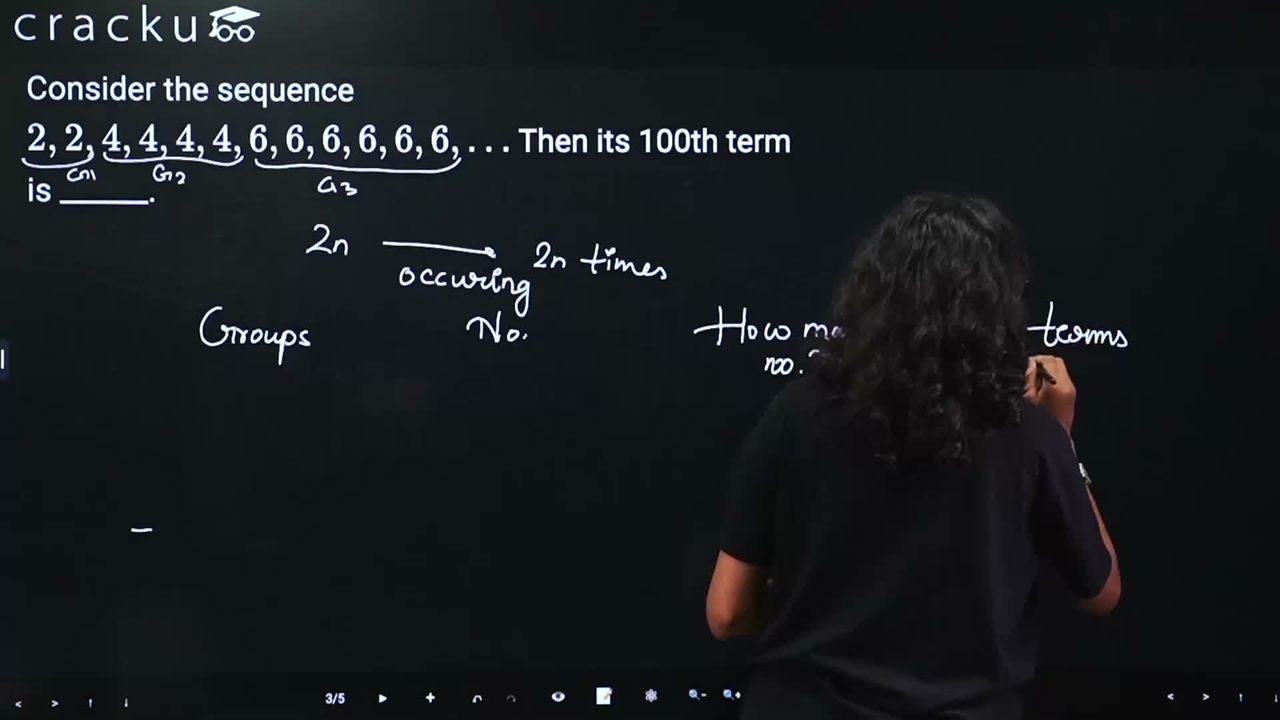 cracku
Consider the sequence
2, 2, 4, 4, 4, 4, 6, 6, 6, 6, 6, 6, ... Then its 100th term
G1 G2 G3
is ______.
2n → 2n times
occuring
Groups No. How terms
no.
3/5